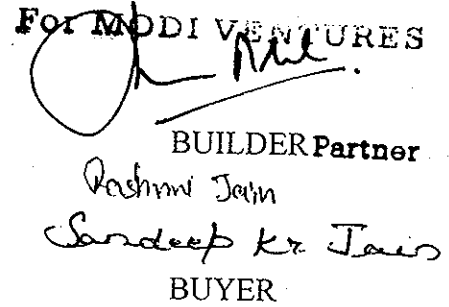 For MODI VENTURES
BUILDER Partner
Rashmi Jain
Sandeep Kr Jain
BUYER